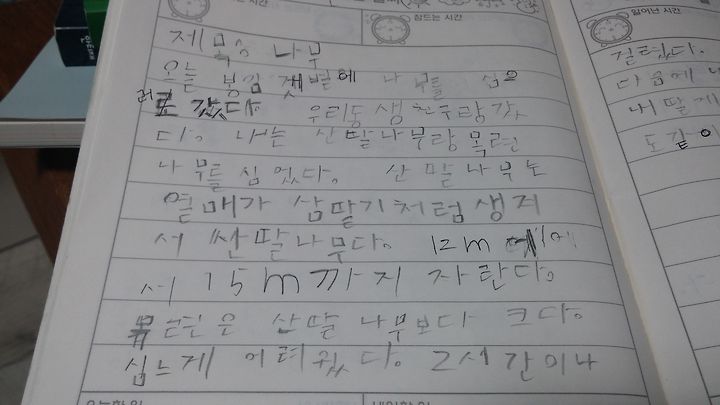 잠드는 시간
일어난 시간
제목: 나무
오늘 봉임 갯벌에 나무를 심으
러 갔다. 우리동생 친구랑 갔
다. 나는 산딸나무랑 목련
나무를 심었다. 산딸나무는
열매가 삼딸기처럼 생겨
서 싼딸나무다. 12m 에
서 15m까지 자란다.
목련은 산딸나무보다 크다.
심느게 어려웠다. 2시간이나
걸렸다.
다음에
내 딸게
도같이